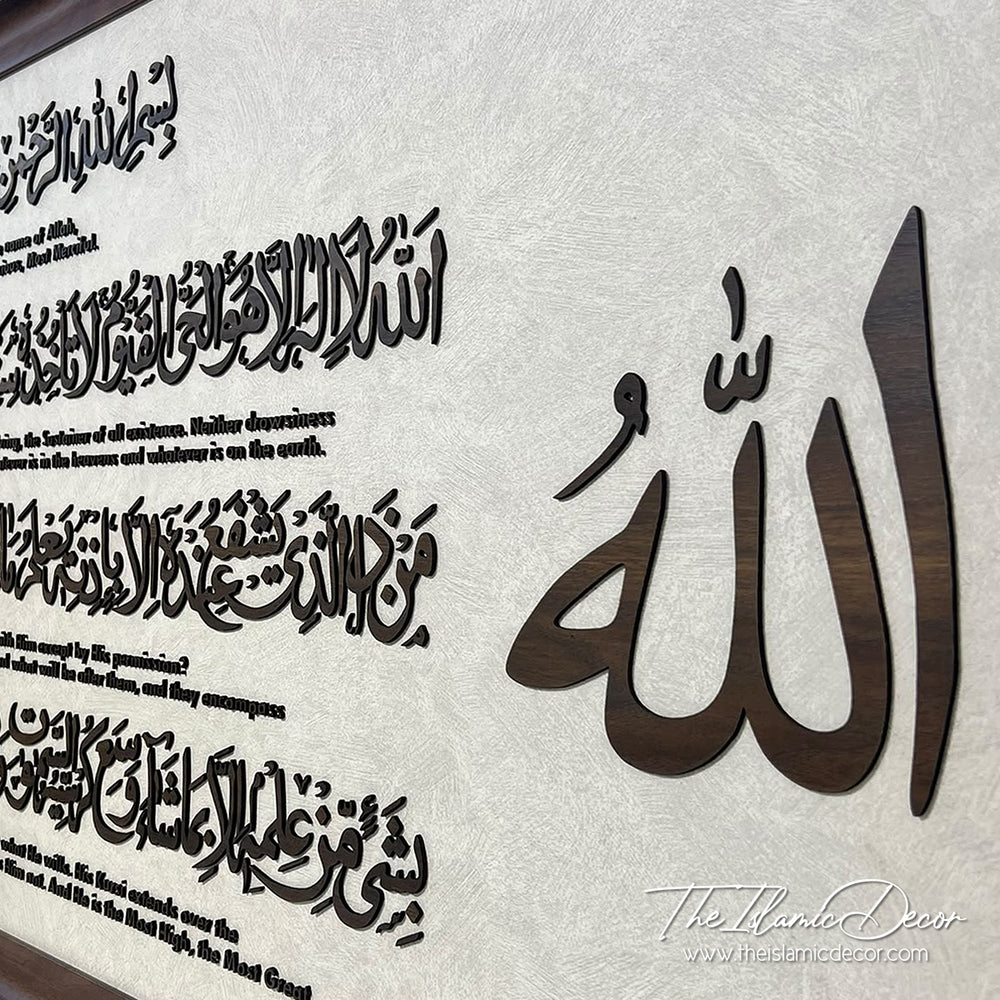 بِسْمِ اللهِ الرَّحْمٰنِ
name of Allah,
Most Merciful.
اَللهُ لَا اِلٰهَ اِلَّا هُوَ الْحَيُّ الْقَيُّوْمُ لَا تَأْخُذُهٗ
the Sustainer of all existence. Neither drowsiness
is in the heavens and whatever is on the earth.
مَنْ ذَا الَّذِيْ يَشْفَعُ عِنْدَهٗ اِلَّا بِاِذْنِهٖ يَعْلَمُ
Him except by His permission?
what will be after them, and they encompass
بِشَيْءٍ مِّنْ عِلْمِهٖ اِلَّا بِمَا شَآءَ وَسِعَ كُرْسِيُّهُ السَّمٰوٰتِ
what He wills. His Kursi extends over the
Him not. And He is the Most High, the Most Great
الله
The Islamic Decor
www.theislamicdecor.com